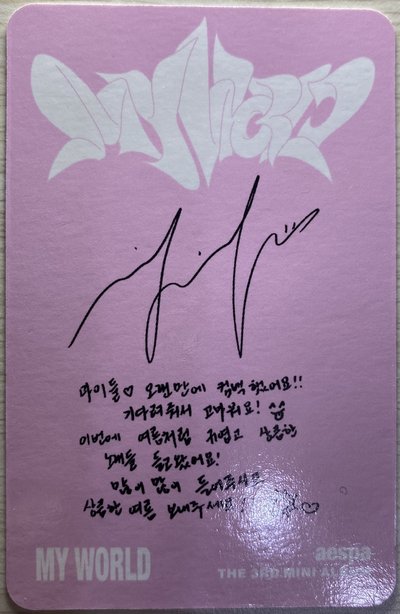 MY WORLD
마이들♡ 오랜만에 컴백 했어요!!
기다려줘서 고마워요! ^^
이번에 여름처럼 귀엽고 상큼한
노래들 들고왔어요!
많이 많이 들어주시고
상큼한 여름 보내주세요! ☆♡
MY WORLD
aespa
THE 3RD MINI ALBUM